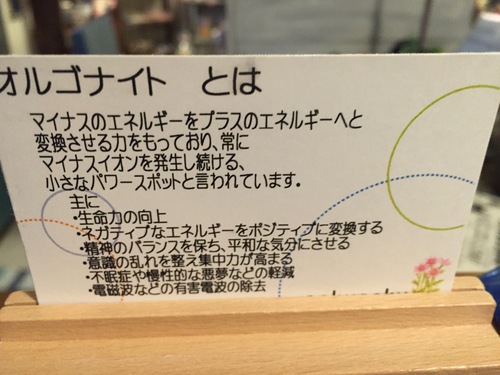 オルゴナイト とは
マイナスのエネルギーをプラスのエネルギーへと
変換させる力をもっており、常に
マイナスイオンを発生し続ける、
小さなパワースポットと言われています。
主に
・生命力の向上
・ネガティブなエネルギーをポジティブに変換する
・精神のバランスを保ち、平和な気分にさせる
・意識の乱れを整え集中力が高まる
・不眠症や慢性的な悪夢などの軽減
・電磁波などの有害電波の除去